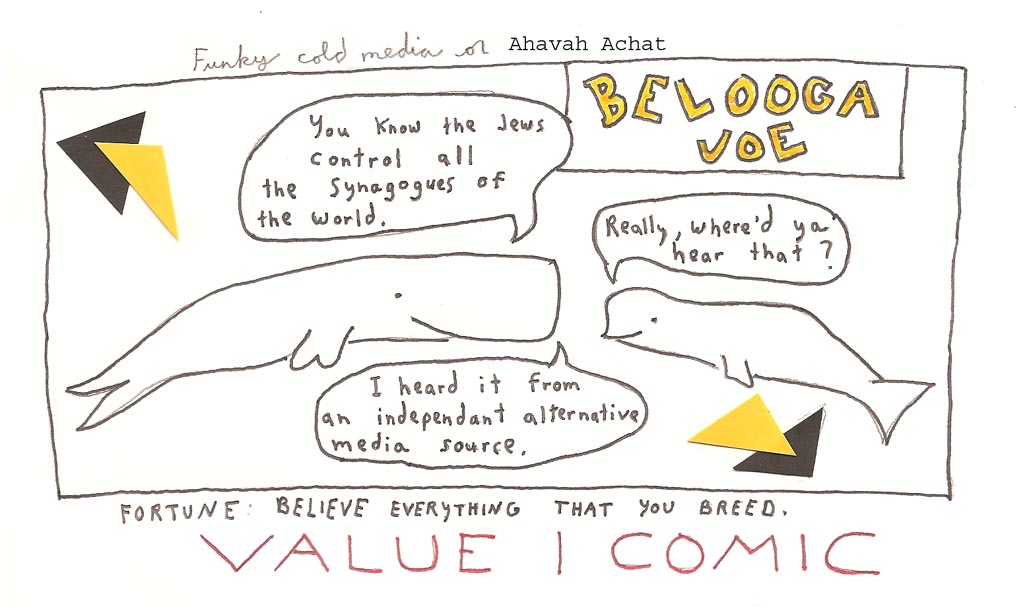 Funky cold media or Ahavah Achat
BELOOGA
JOE
You know the Jews
control all
the Synagogues of
the world.
Really, where'd ya
hear that?
I heard it from
an independant alternative
media source.
FORTUNE: BELIEVE EVERYTHING THAT YOU BREED.
VALUE | COMIC